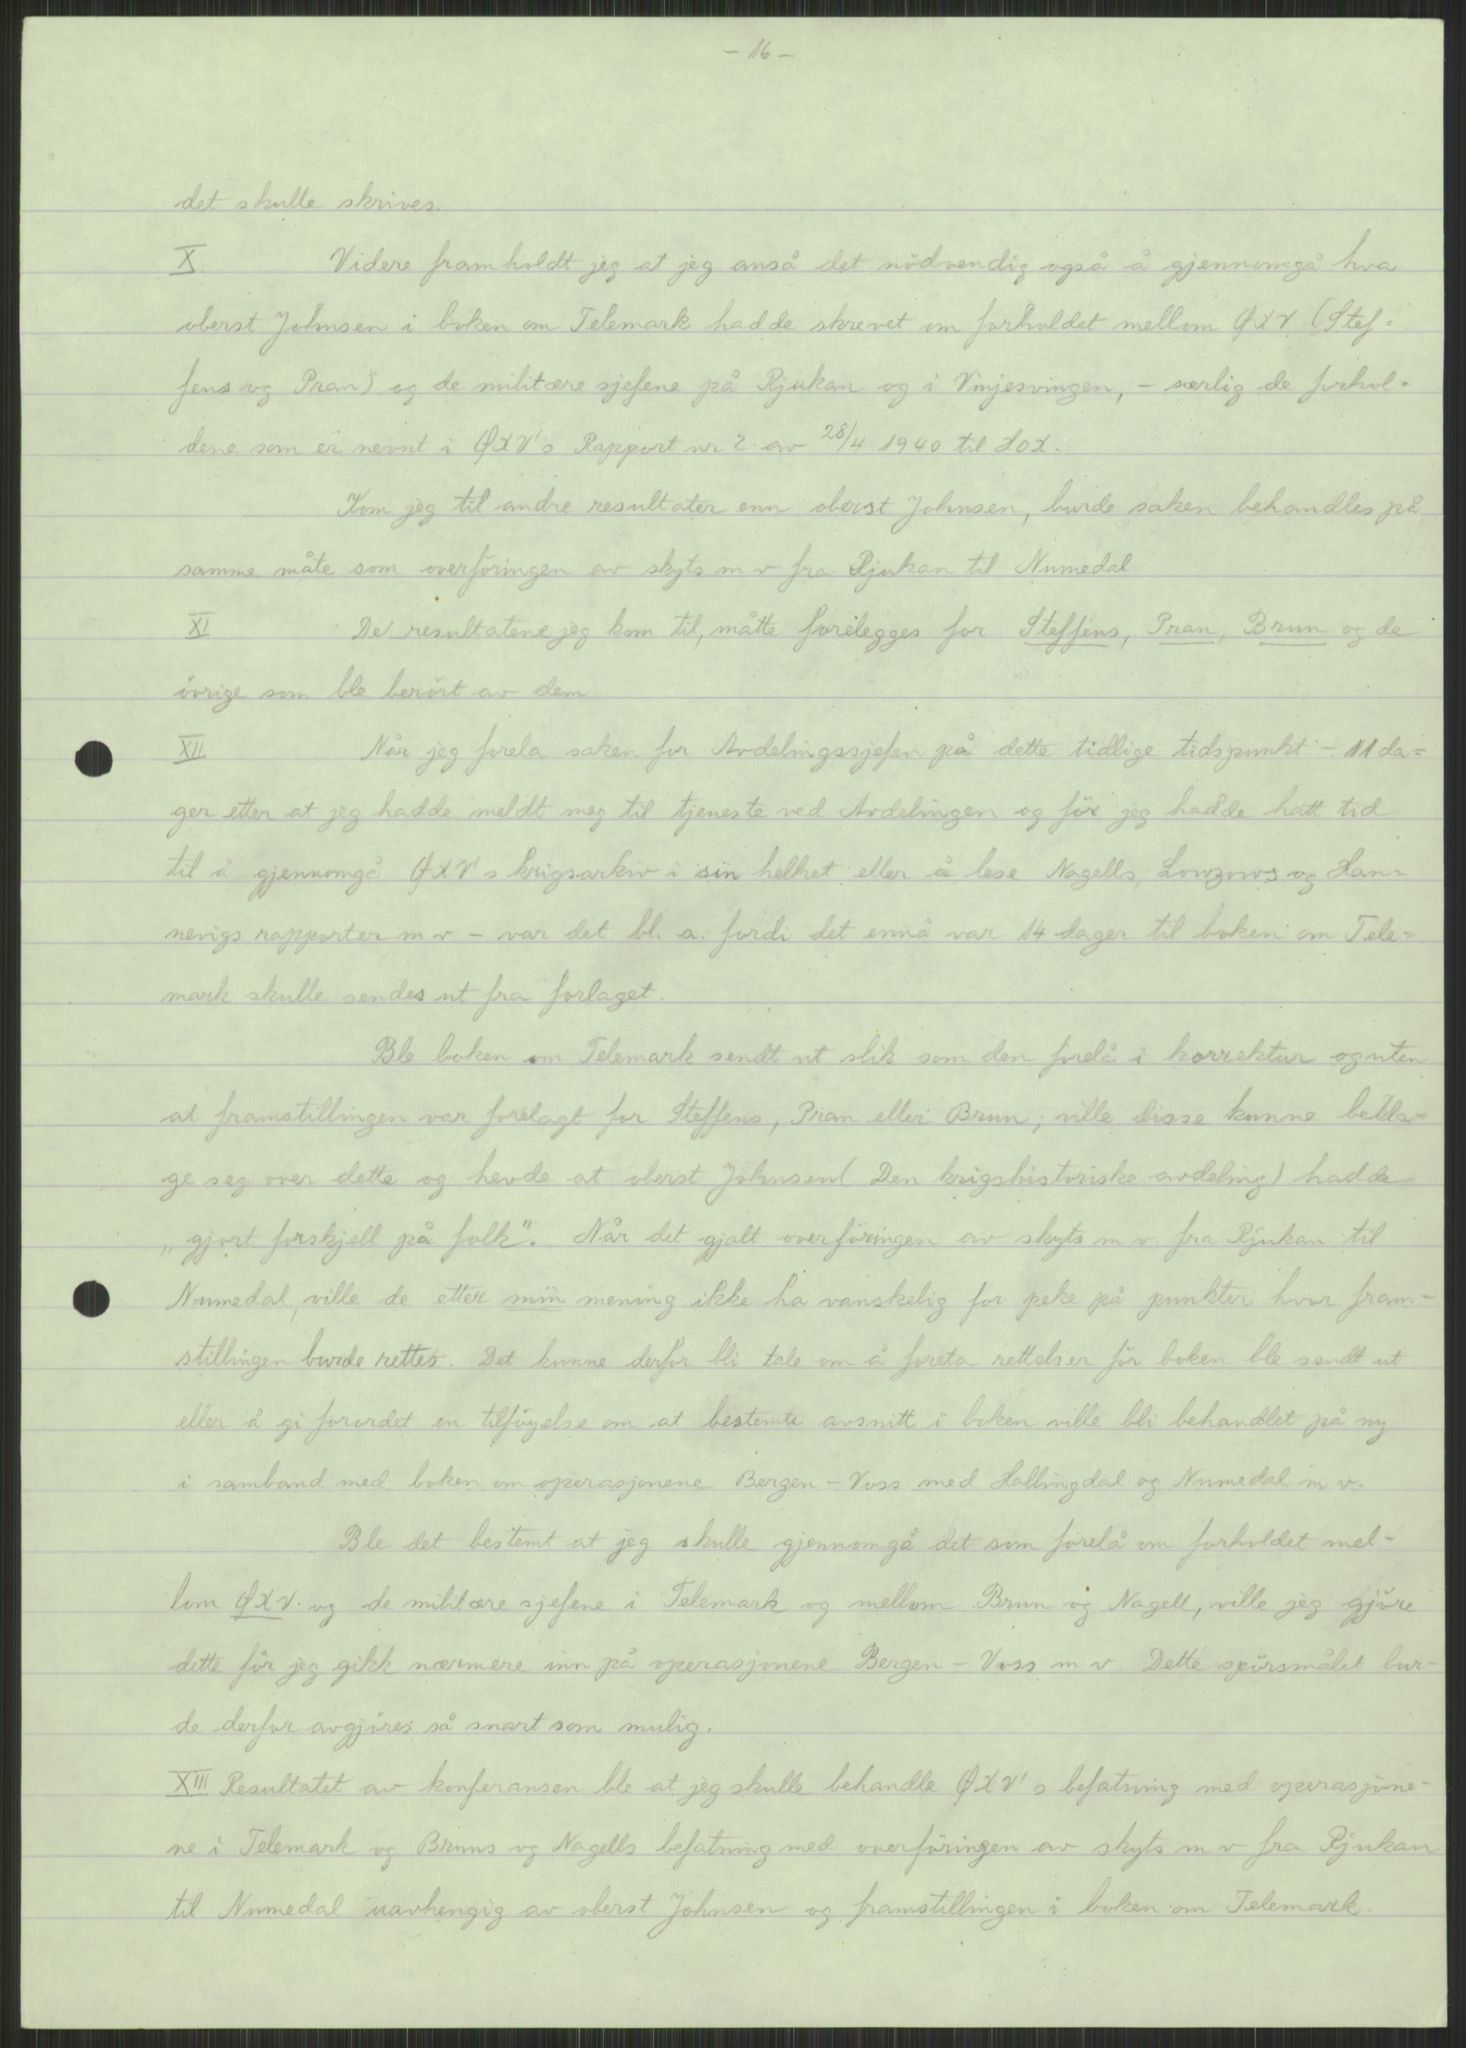 - 16 -
det skulle skrives.
X. Videre framholdt jeg at jeg anså det nödvendig også å gjennomgå hva
oberst Johnsen i boken om Telemark hadde skrevet om forholdet mellom ØKV (Stef-
fens og Pran) og de militære sjefene på Rjukan og i Vinjesvingen, - særlig de forhol-
dene som er nevnt i ØKV's Rapport nr 2 av 28/4 1940 til HOK.
Kom jeg til andre resultater enn oberst Johnsen, burde saken behandles på
samme måte som overföringen av skyts m v fra Rjukan til Numedal
XI De resultatene jeg kom til, måtte forelegges for Steffens, Pran, Brun og de
övrige som ble berört av dem
XII Når jeg forela saken for Avdelingssjefen på dette tidlige tidspunkt - 11 da-
ger etter at jeg hadde meldt meg til tjeneste ved Avdelingen og för jeg hadde hatt tid
til å gjennomgå ØKV's krigsarkiv i sin helhet eller å lese Nagells, Lowzows og Han-
nevigs rapporter m v - var det bl. a. fordi det ennå var 14 dager til boken om Tele-
mark skulle sendes ut fra forlaget.
Ble boken om Telemark sendt ut slik som den forelå i korrektur og uten
at framstillingen var forelagt for Steffens, Pran eller Brun, ville disse kunne bekla-
ge seg over dette og hevde at oberst Johnsen (Den krigshistoriske avdeling) hadde
„gjort forskjell på folk". Når det gjalt overföringen av skyts m v. fra Rjukan til
Numedal, ville de etter min mening ikke ha vanskelig for peke på punkter hvor fram-
stillingen burde rettes. Det kunne derfor bli tale om å foreta rettelser för boken ble sendt ut
eller å gi forordet en tilföyelse om at bestemte avsnitt i boken ville bli behandlet på ny
i samband med boken om operasjonene Bergen - Voss med Hallingdal og Numedal m v.
Ble det bestemt at jeg skulle gjennomgå det som forelå om forholdet mel-
lom ØKV. og de militære sjefene i Telemark og mellom Brun og Nagell, ville jeg gjöre
dette för jeg gikk nærmere inn på operasjonene Bergen - Voss m v Dette spörsmålet bur-
de derfor avgjöres så snart som mulig.
XIII Resultatet av konferansen ble at jeg skulle behandle ØKV's befatning med operasjone-
ne i Telemark og Bruns og Nagells befatning med overföringen av skyts m v fra Rjukan
til Numedal uavhengig av oberst Johnsen og framstillingen i boken om Telemark.